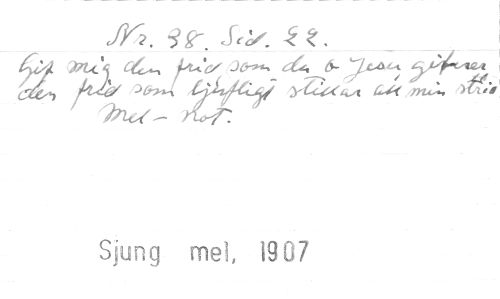 Nr. 38. Sid. 22.
Gif mig den frid som du o Jesu gifver
den frid som ljufligt stillar all min strid
Mel - not.
Sjung mel, 1907